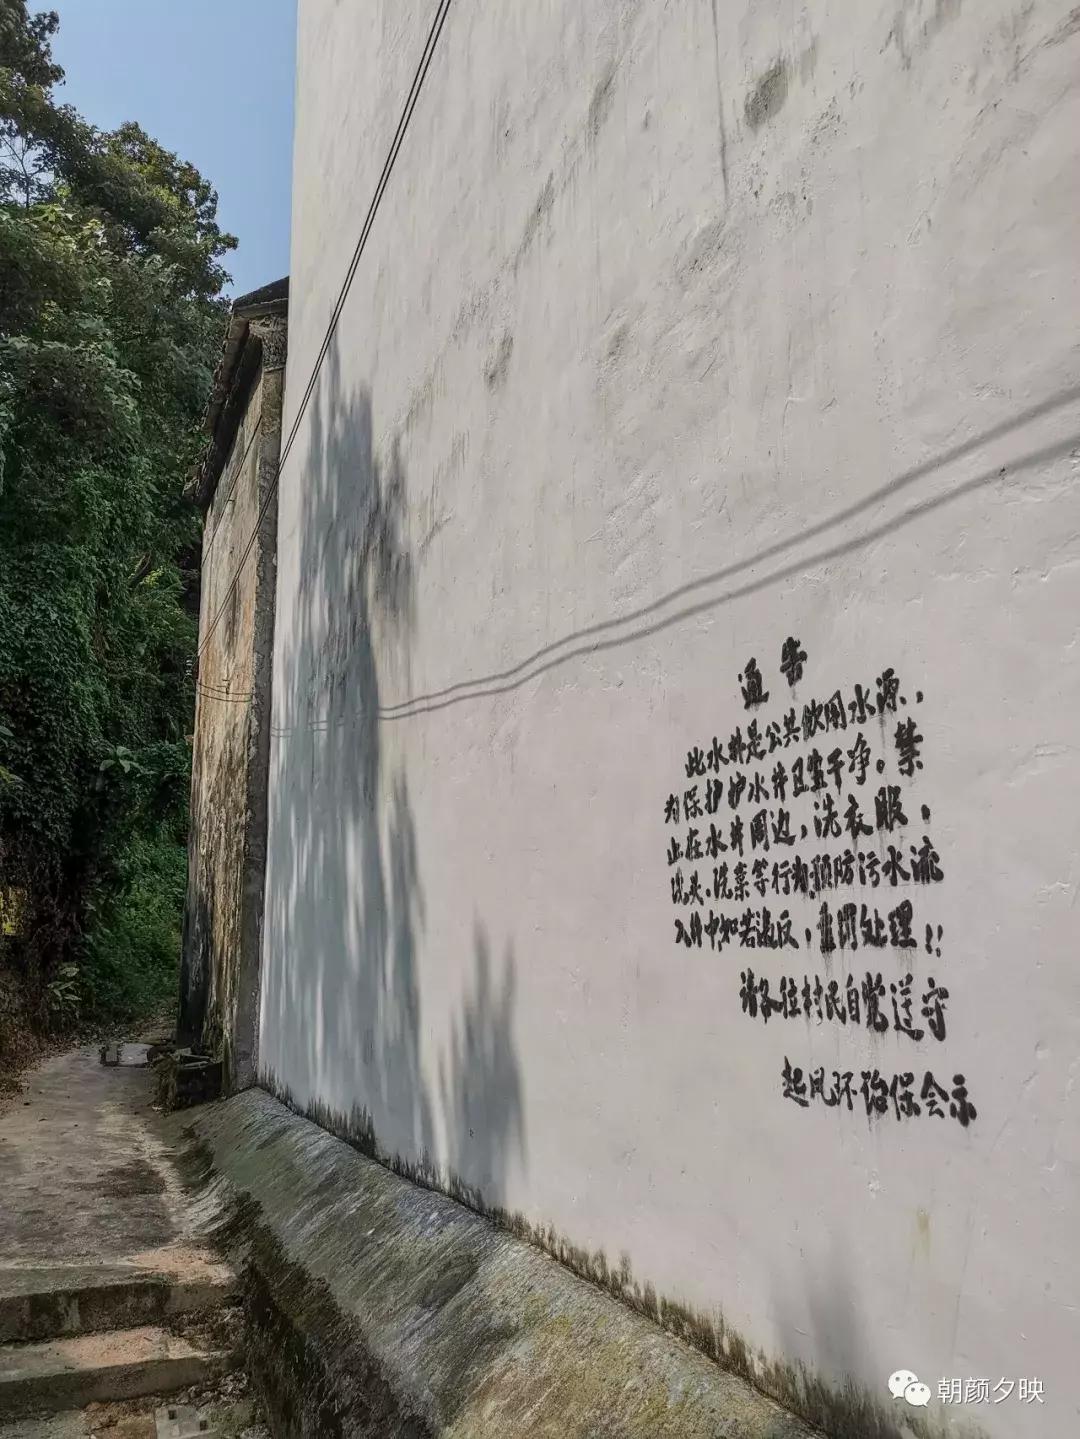 通告
此水井是公共饮用水源，
为保护水井卫生干净。禁
止在水井周边，洗衣服，
洗头、洗菜等行为，预防污水流
入井中如若违反，重罚处理！！
请各位村民自觉遵守
起凤环治保会示
朝颜夕映